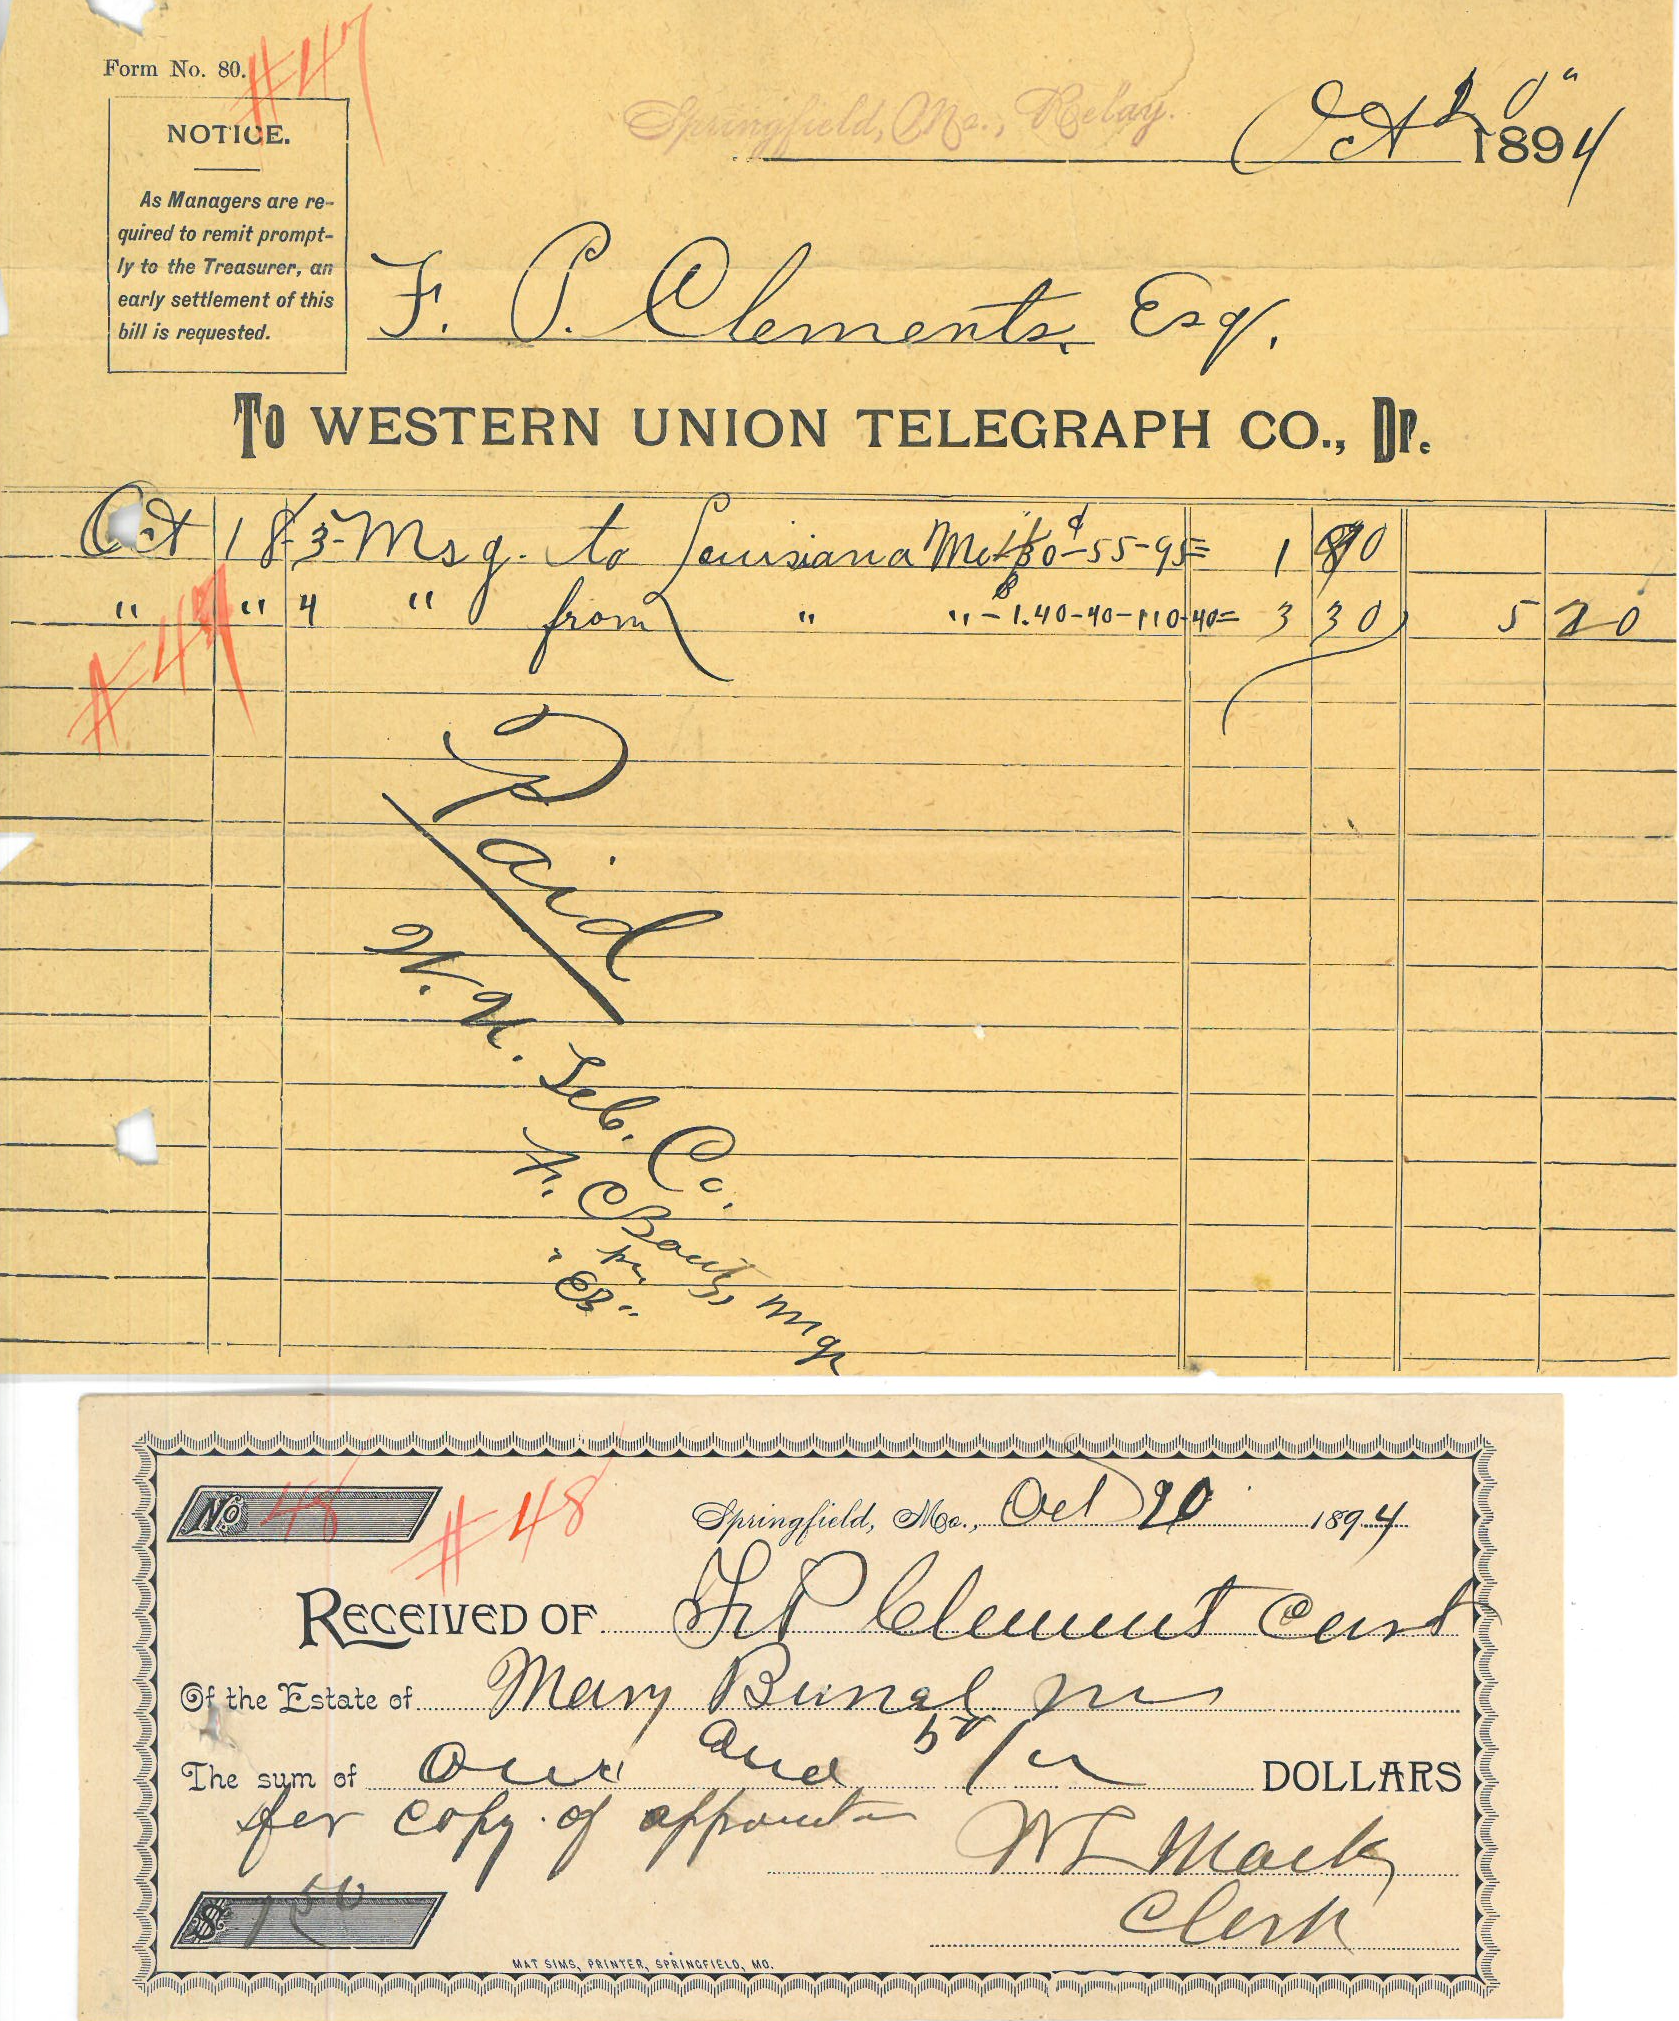 #47
Form No. 80.
Springfield, Mo., Relay.
Oct 20" 1894
NOTICE.
As Managers are re-
quired to remit prompt-
ly to the Treasurer, an
early settlement of this
bill is requested.
F. P. Clements, Esq.
To WESTERN UNION TELEGRAPH CO., Dr.
Oct 18 3 Msg. to Louisiana Mo 55-95= 1 90
" " 4 " from " " - 1.40-40-110-40= 3 30 5 20
#47
Paid
W. U. Tel. Co.
Mgr
per
"B"
No 48 #48 Springfield, Mo., Oct 20 1894
RECEIVED OF F P Clement
Of the Estate of Mary
The sum of One and 50/ DOLLARS
for copy of
W L Mack
Clerk
$ 1 50
MAT SIMS, PRINTER, SPRINGFIELD, MO.